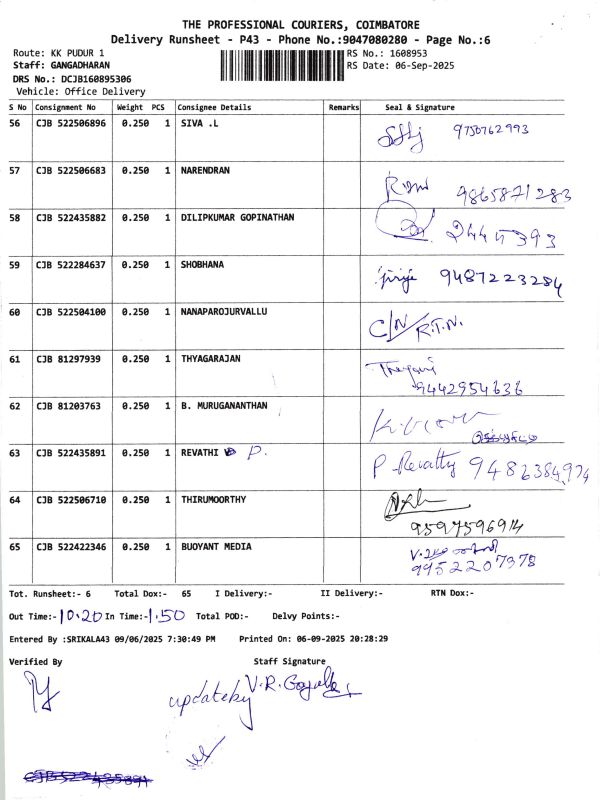 THE PROFESSIONAL COURIERS, COIMBATORE
Delivery Runsheet - P43 - Phone No.:9047080280 - Page No.:6
Route: KK PUDUR 1 RS No.: 1608953
Staff: GANGADHARAN RS Date: 06-Sep-2025
DRS No.: DCJB160895306
Vehicle: Office Delivery
S No Consignment No Weight PCS Consignee Details Remarks Seal & Signature
56 CJB 522506896 0.250 1 SIVA .L 9750762993
57 CJB 522506683 0.250 1 NARENDRAN 9865871283
58 CJB 522435882 0.250 1 DILIPKUMAR GOPINATHAN 2445393
59 CJB 522284637 0.250 1 SHOBHANA 9487223284
60 CJB 522504100 0.250 1 NANAPAROJURVALLU C/N/R.T.N.
61 CJB 81297939 0.250 1 THYAGARAJAN
9442954636
62 CJB 81203763 0.250 1 B. MURUGANANTHAN
63 CJB 522435891 0.250 1 REVATHI P. P. Revathy 9486384974
64 CJB 522506710 0.250 1 THIRUMOORTHY
9597596914
65 CJB 522422346 0.250 1 BUOYANT MEDIA
9952207378
Tot. Runsheet:- 6 Total Dox:- 65 I Delivery:- II Delivery:- RTN Dox:-
Out Time:- 10.20 In Time:- 1.50 Total POD:- Delvy Points:-
Entered By :SRIKALA43 09/06/2025 7:30:49 PM Printed On: 06-09-2025 20:28:29
Verified By Staff Signature
update by V.R.
CJB522435891